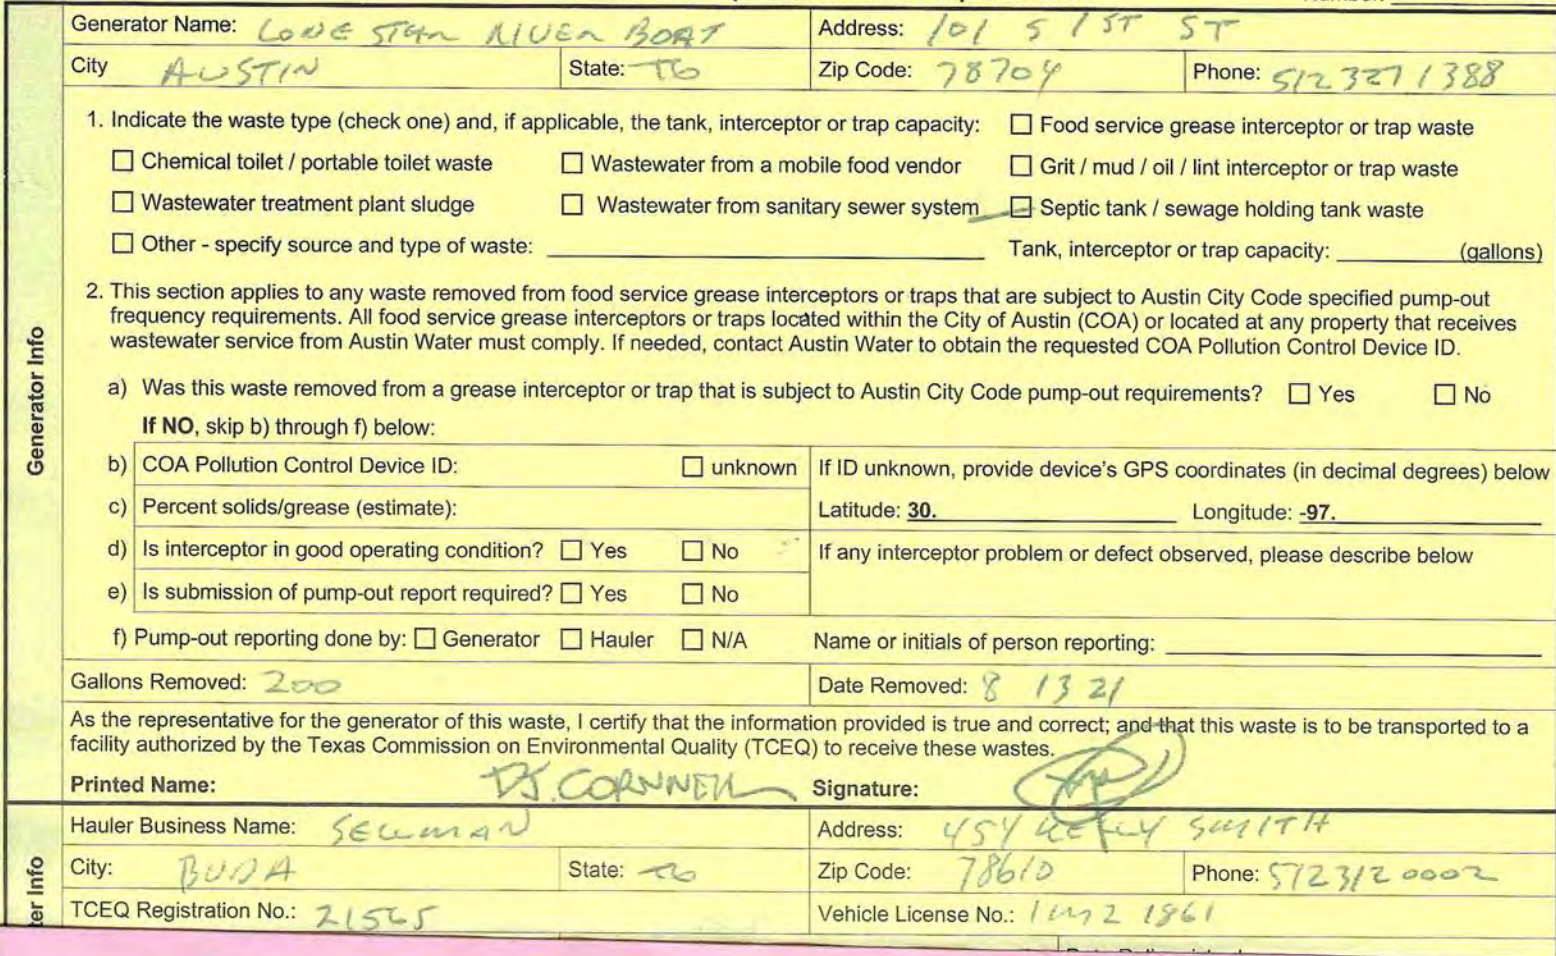 Generator Name: LONE STAR RIVER BOAT Address: 101 S 1ST ST
City AUSTIN State: TX Zip Code: 78704 Phone: 512 327 1388
1. Indicate the waste type (check one) and, if applicable, the tank, interceptor or trap capacity: ☐ Food service grease interceptor or trap waste
☐ Chemical toilet / portable toilet waste ☐ Wastewater from a mobile food vendor ☐ Grit / mud / oil / lint interceptor or trap waste
☐ Wastewater treatment plant sludge ☐ Wastewater from sanitary sewer system ☐ Septic tank / sewage holding tank waste
☐ Other - specify source and type of waste: Tank, interceptor or trap capacity: (gallons)
2. This section applies to any waste removed from food service grease interceptors or traps that are subject to Austin City Code specified pump-out
frequency requirements. All food service grease interceptors or traps located within the City of Austin (COA) or located at any property that receives
wastewater service from Austin Water must comply. If needed, contact Austin Water to obtain the requested COA Pollution Control Device ID.
a) Was this waste removed from a grease interceptor or trap that is subject to Austin City Code pump-out requirements? ☐ Yes ☐ No
If NO, skip b) through f) below:
b) COA Pollution Control Device ID: ☐ unknown If ID unknown, provide device's GPS coordinates (in decimal degrees) below
c) Percent solids/grease (estimate): Latitude: 30. Longitude: -97.
d) Is interceptor in good operating condition? ☐ Yes ☐ No If any interceptor problem or defect observed, please describe below
e) Is submission of pump-out report required? ☐ Yes ☐ No
f) Pump-out reporting done by: ☐ Generator ☐ Hauler ☐ N/A Name or initials of person reporting:
Gallons Removed: 200 Date Removed: 8 13 21
As the representative for the generator of this waste, I certify that the information provided is true and correct; and that this waste is to be transported to a
facility authorized by the Texas Commission on Environmental Quality (TCEQ) to receive these wastes.
Printed Name: DJ. CORNNELL Signature:
Hauler Business Name: SELLMAN Address: 454 KELLY SMITH
City: BUDA State: TX Zip Code: 78610 Phone: 512 312 0002
TCEQ Registration No.: 21565 Vehicle License No.: 1861
Generator Info
ter Info